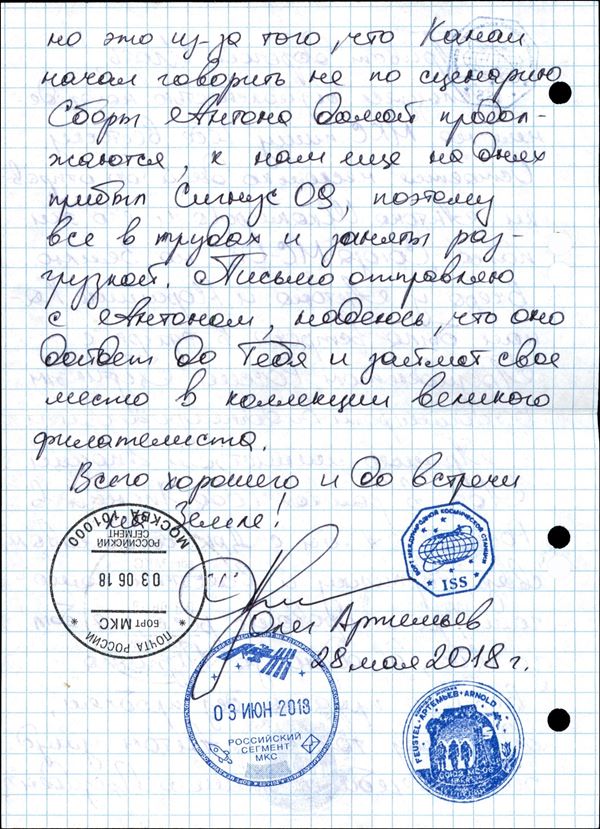 но это из-за того, что Канаи
начал говорить не по сценарию
Сборы Антона домой продол-
жаются, к нам еще на днях
прибыл Сигнус 09, поэтому
все в трудах и заняты раз-
грузкой. Письмо отправляю
с Антоном, надеюсь, что оно
дойдет до Тебя и займет свое
место в коллекции великого
филателиста.
Всего хорошего и до встречи
на Земле!
МОСКВА 101000
РОССИЙСКИЙ
СЕГМЕНТ
03 06 18
БОРТ МКС
* ПОЧТА РОССИИ *
БОРТ МЕЖДУНАРОДНОЙ КОСМИЧЕСКОЙ СТАНЦИИ
ISS
Олег Артемьев
28 мая 2018 г.
03 ИЮН 2018
РОССИЙСКИЙ
СЕГМЕНТ
МКС
FEUSTEL • АРТЕМЬЕВ • ARNOLD
СОЮЗ МС-08